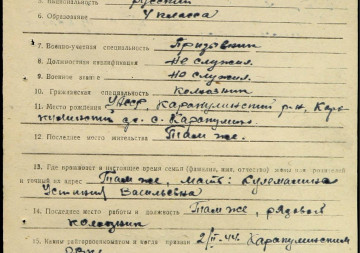 5. Национальность русский
6. Образование 4 класса
7. Военно-учетная специальность
8. Должностная квалификация не служил.
9. Военное звание не служил.
10. Гражданская специальность колхозник
11. Место рождения Каракулинский р-н,
с. Каракулино.
12. Последнее место жительства Там же.
13. Где проживает в настоящее время семья (фамилия, имя, отчество) жены или родителей
и точный их адрес Там же, мать:
Васильевна
14. Последнее место работы и должность Там же, рядовой
колхозник
15. Каким райгорвоенкоматом и когда призван Каракулинским
РВК